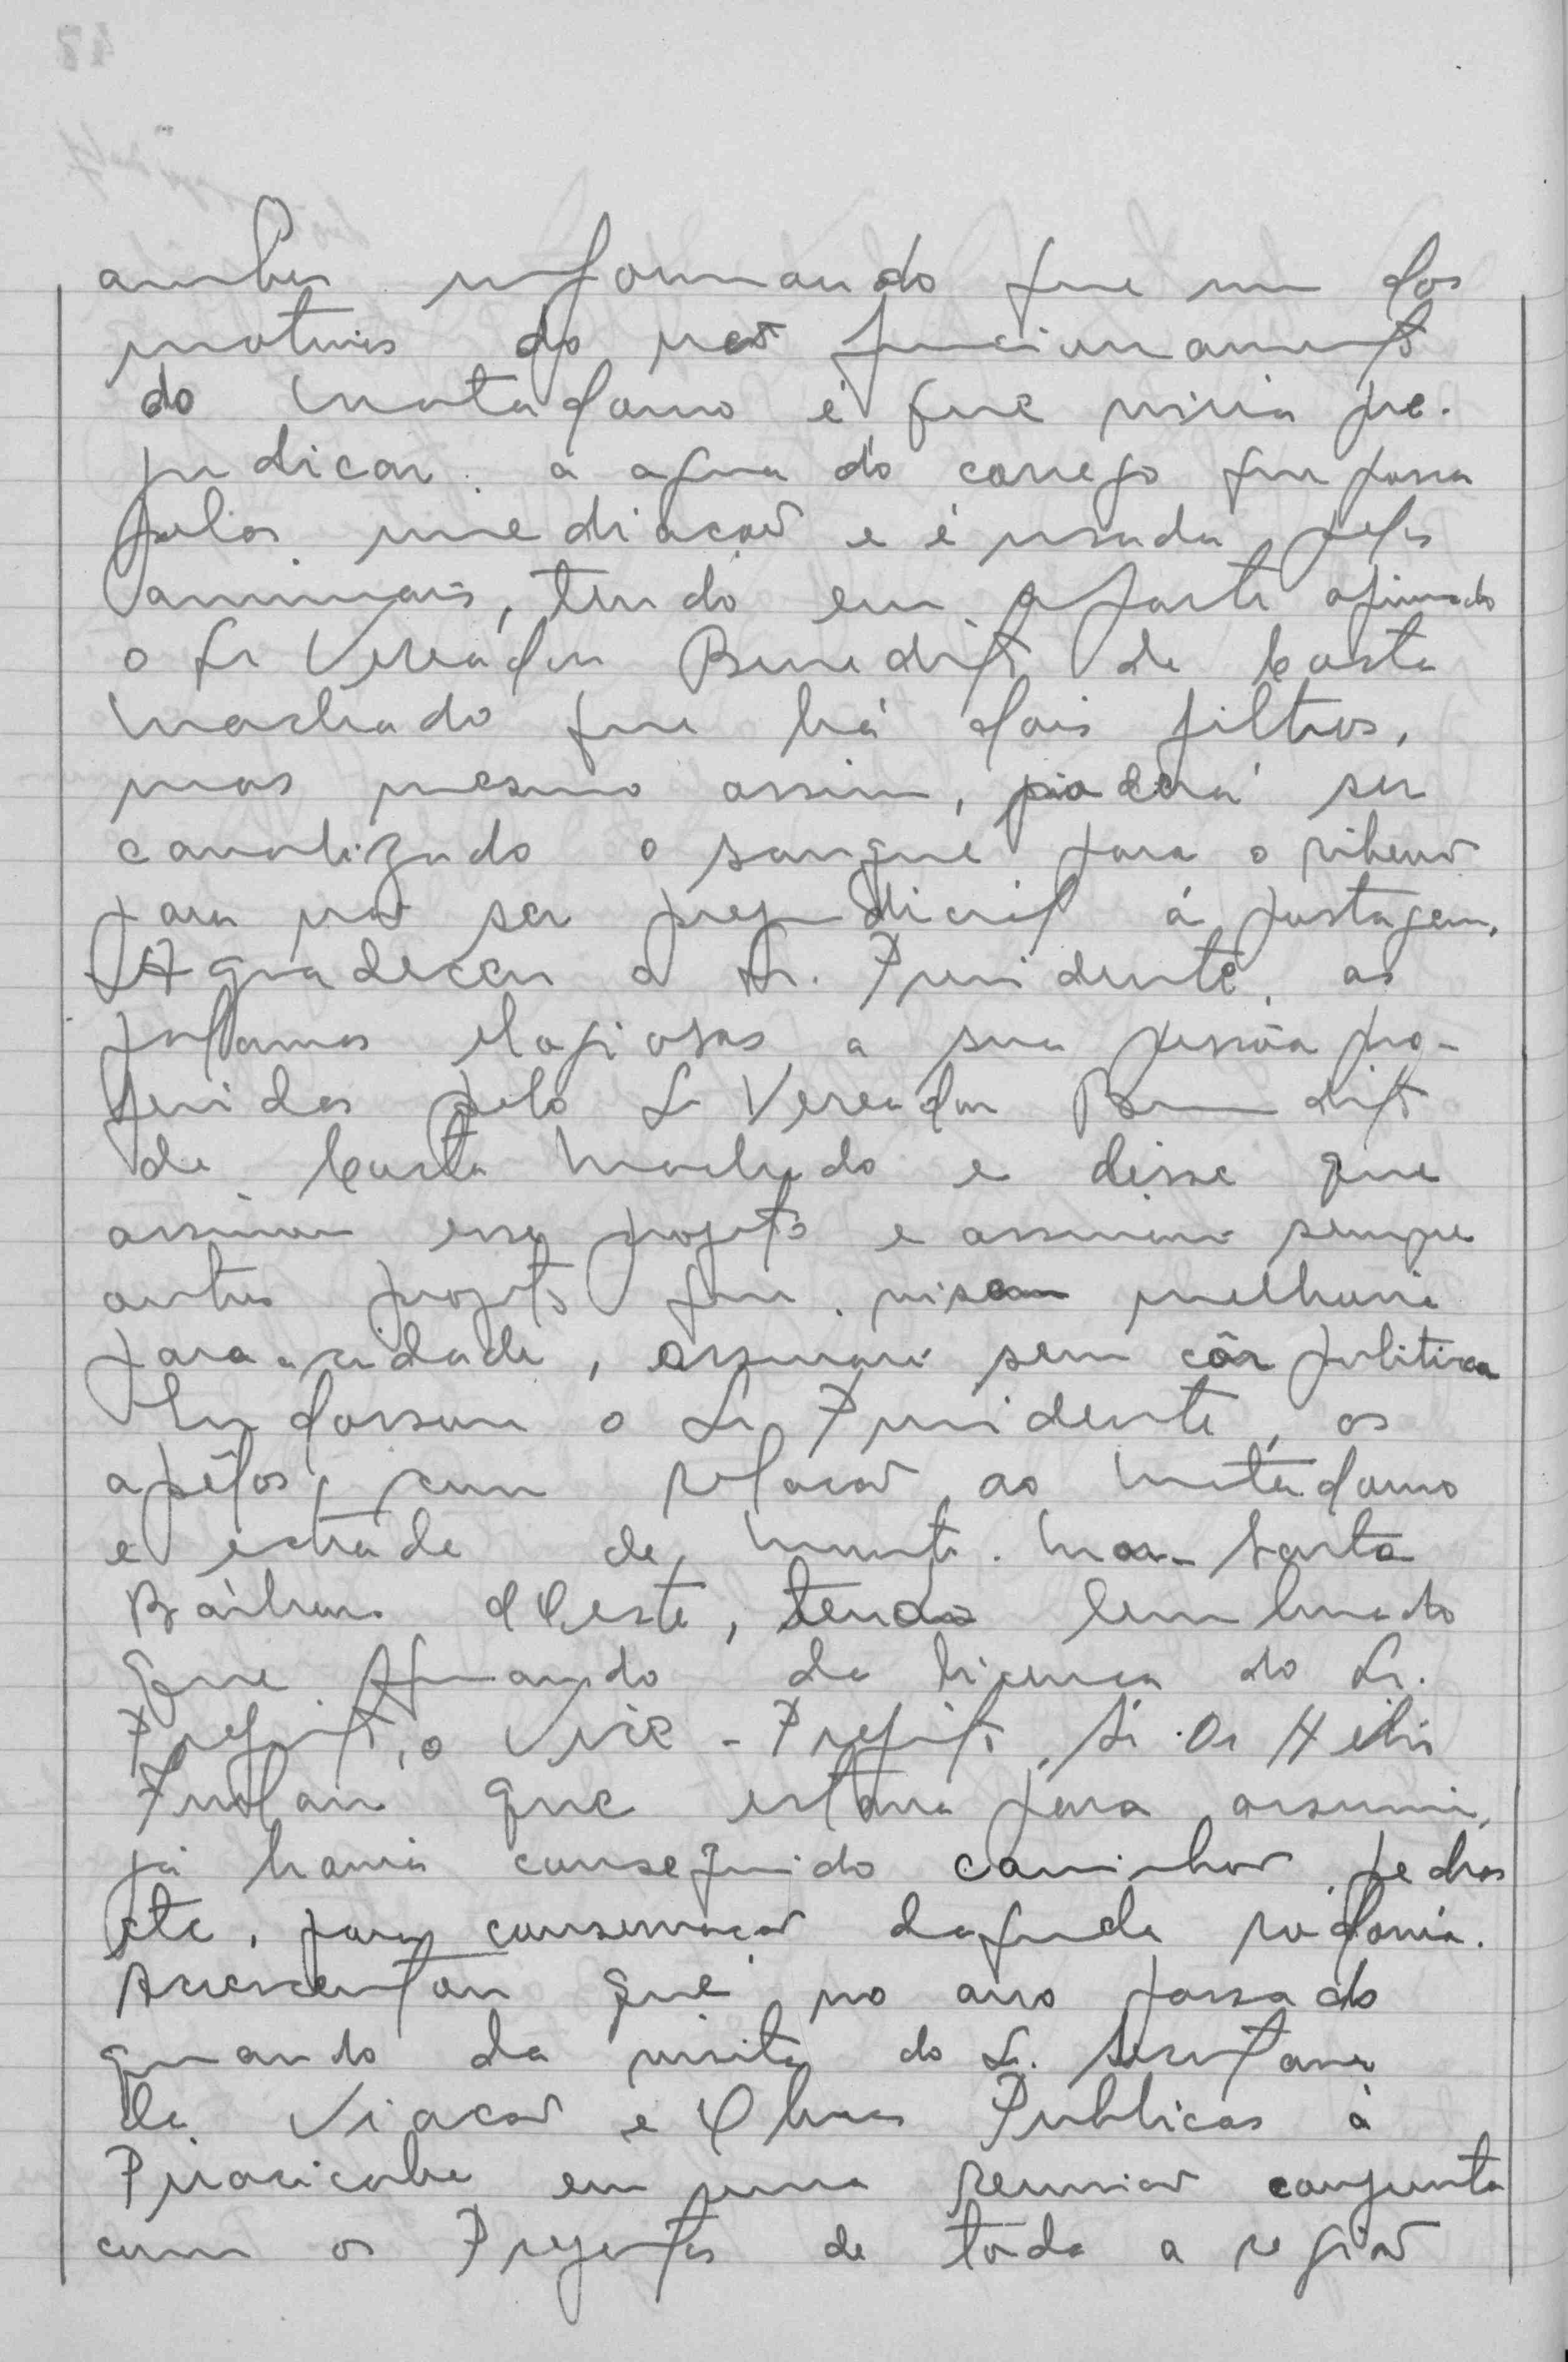 ambos informando que um dos
motivos do não funcionamento
do Matadouro é que viria pre-
judicar a agua do corrego que passa
pelas imediações e é usada pelos
animais, tendo em aparte afirmado
o Sr Vereador Benedito da Costa
Machado que há dois filtros,
mas mesmo assim, poderá ser
canalizado o sangue para o ribeirão
para não ser prejudicial á pastagem.
Agradeceu o Sr. Presidente, as
palavras elogiosas a sua pessôa pro-
feridas pelo Sr Vereador Benedito
da Costa Machado e disse que
assinou esse projeto e assinará sempre
outros projetos que visam melhoria
para a cidade, assinará sem côr politica
Endossou o Sr Presidente, os
apêlos, com relação ao Matadouro
e estrada de Monte-Mor-Santa
Bárbara d'Oeste, tendo lembrado
que quando da licença do Sr.
Prefeito, o Vice-Prefeito, Sr. Dr Hélio
Furlan que estava para assumir,
já havia conseguido caminhão, pedras
etc, para conservação daquela rodovia.
Acrescentou que no ano passado
quando da visita do Sr. Secretario
da Viação e Obras Publicas á
Piracicaba em uma reunião conjunta
com os Prefeitos de toda a região